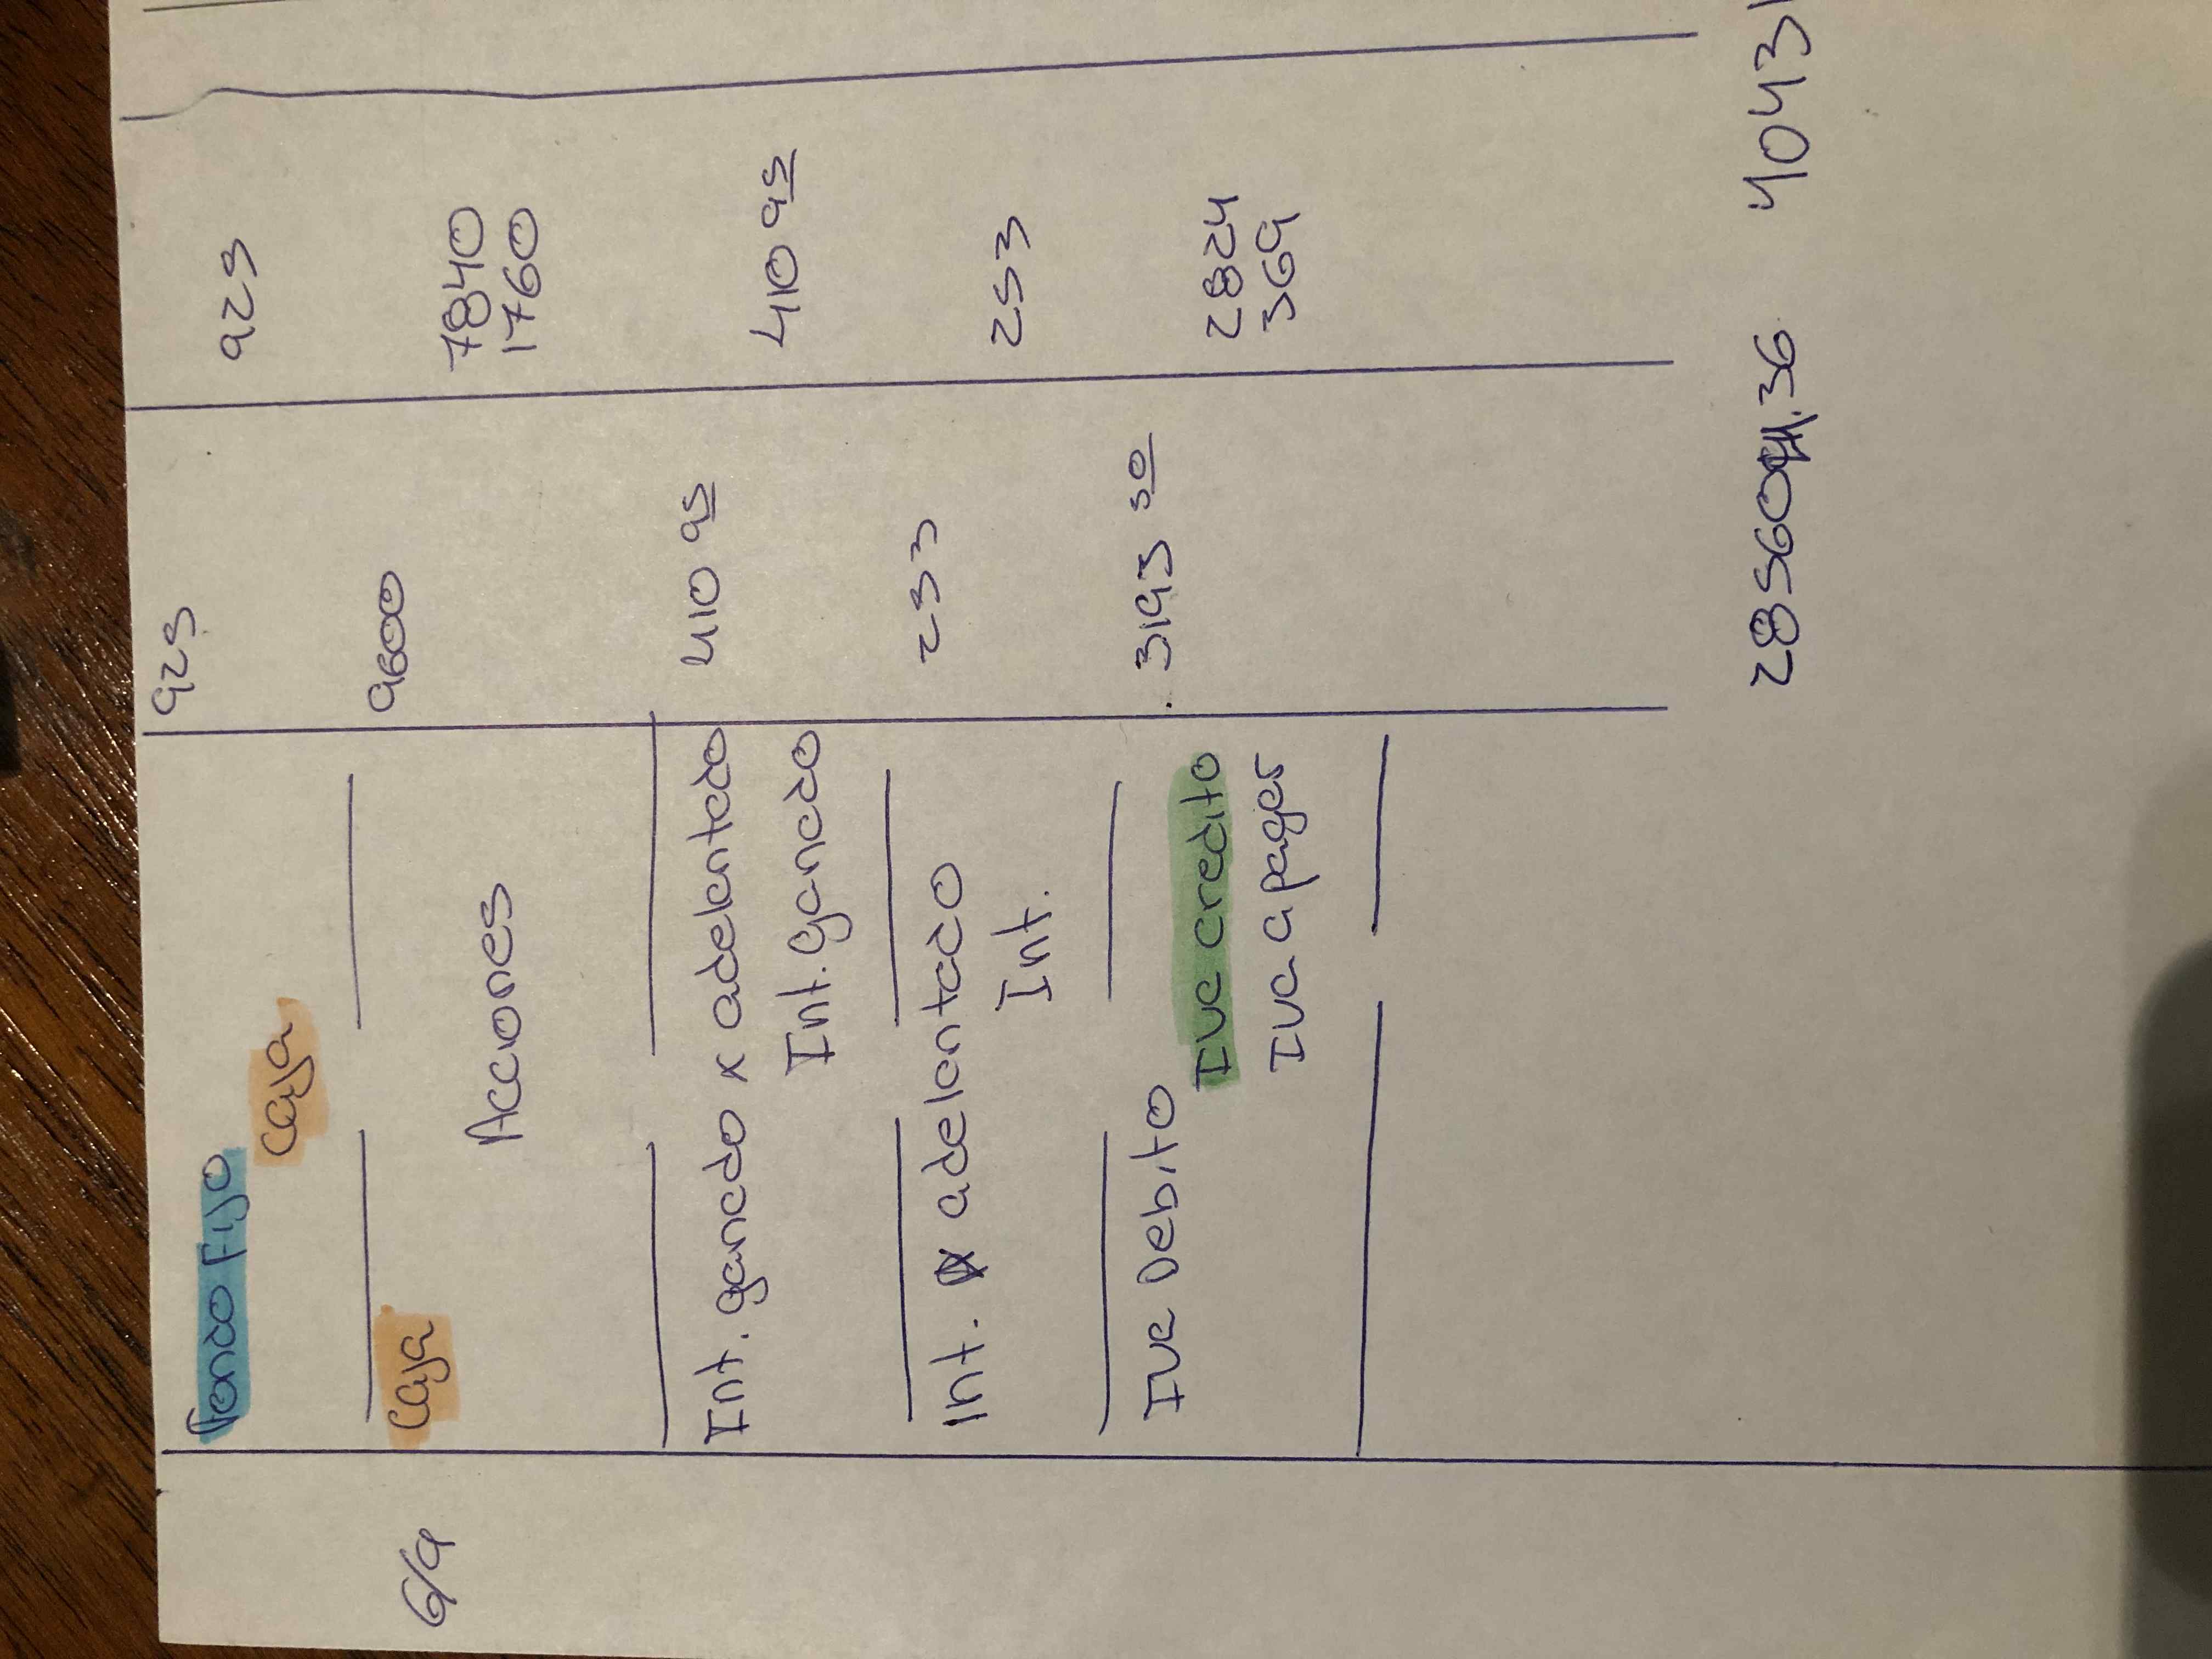 Fondo Fijo 925
Caja 925
6/9 Caja 9600
Acciones 7840
1760
Int. ganado x adelantado 410 95
Int. ganado 410 95
Int. x adelantado 233
Int. 253
Iva Debito 3193 50
Iva credito 2824
Iva a pagar 369
4043